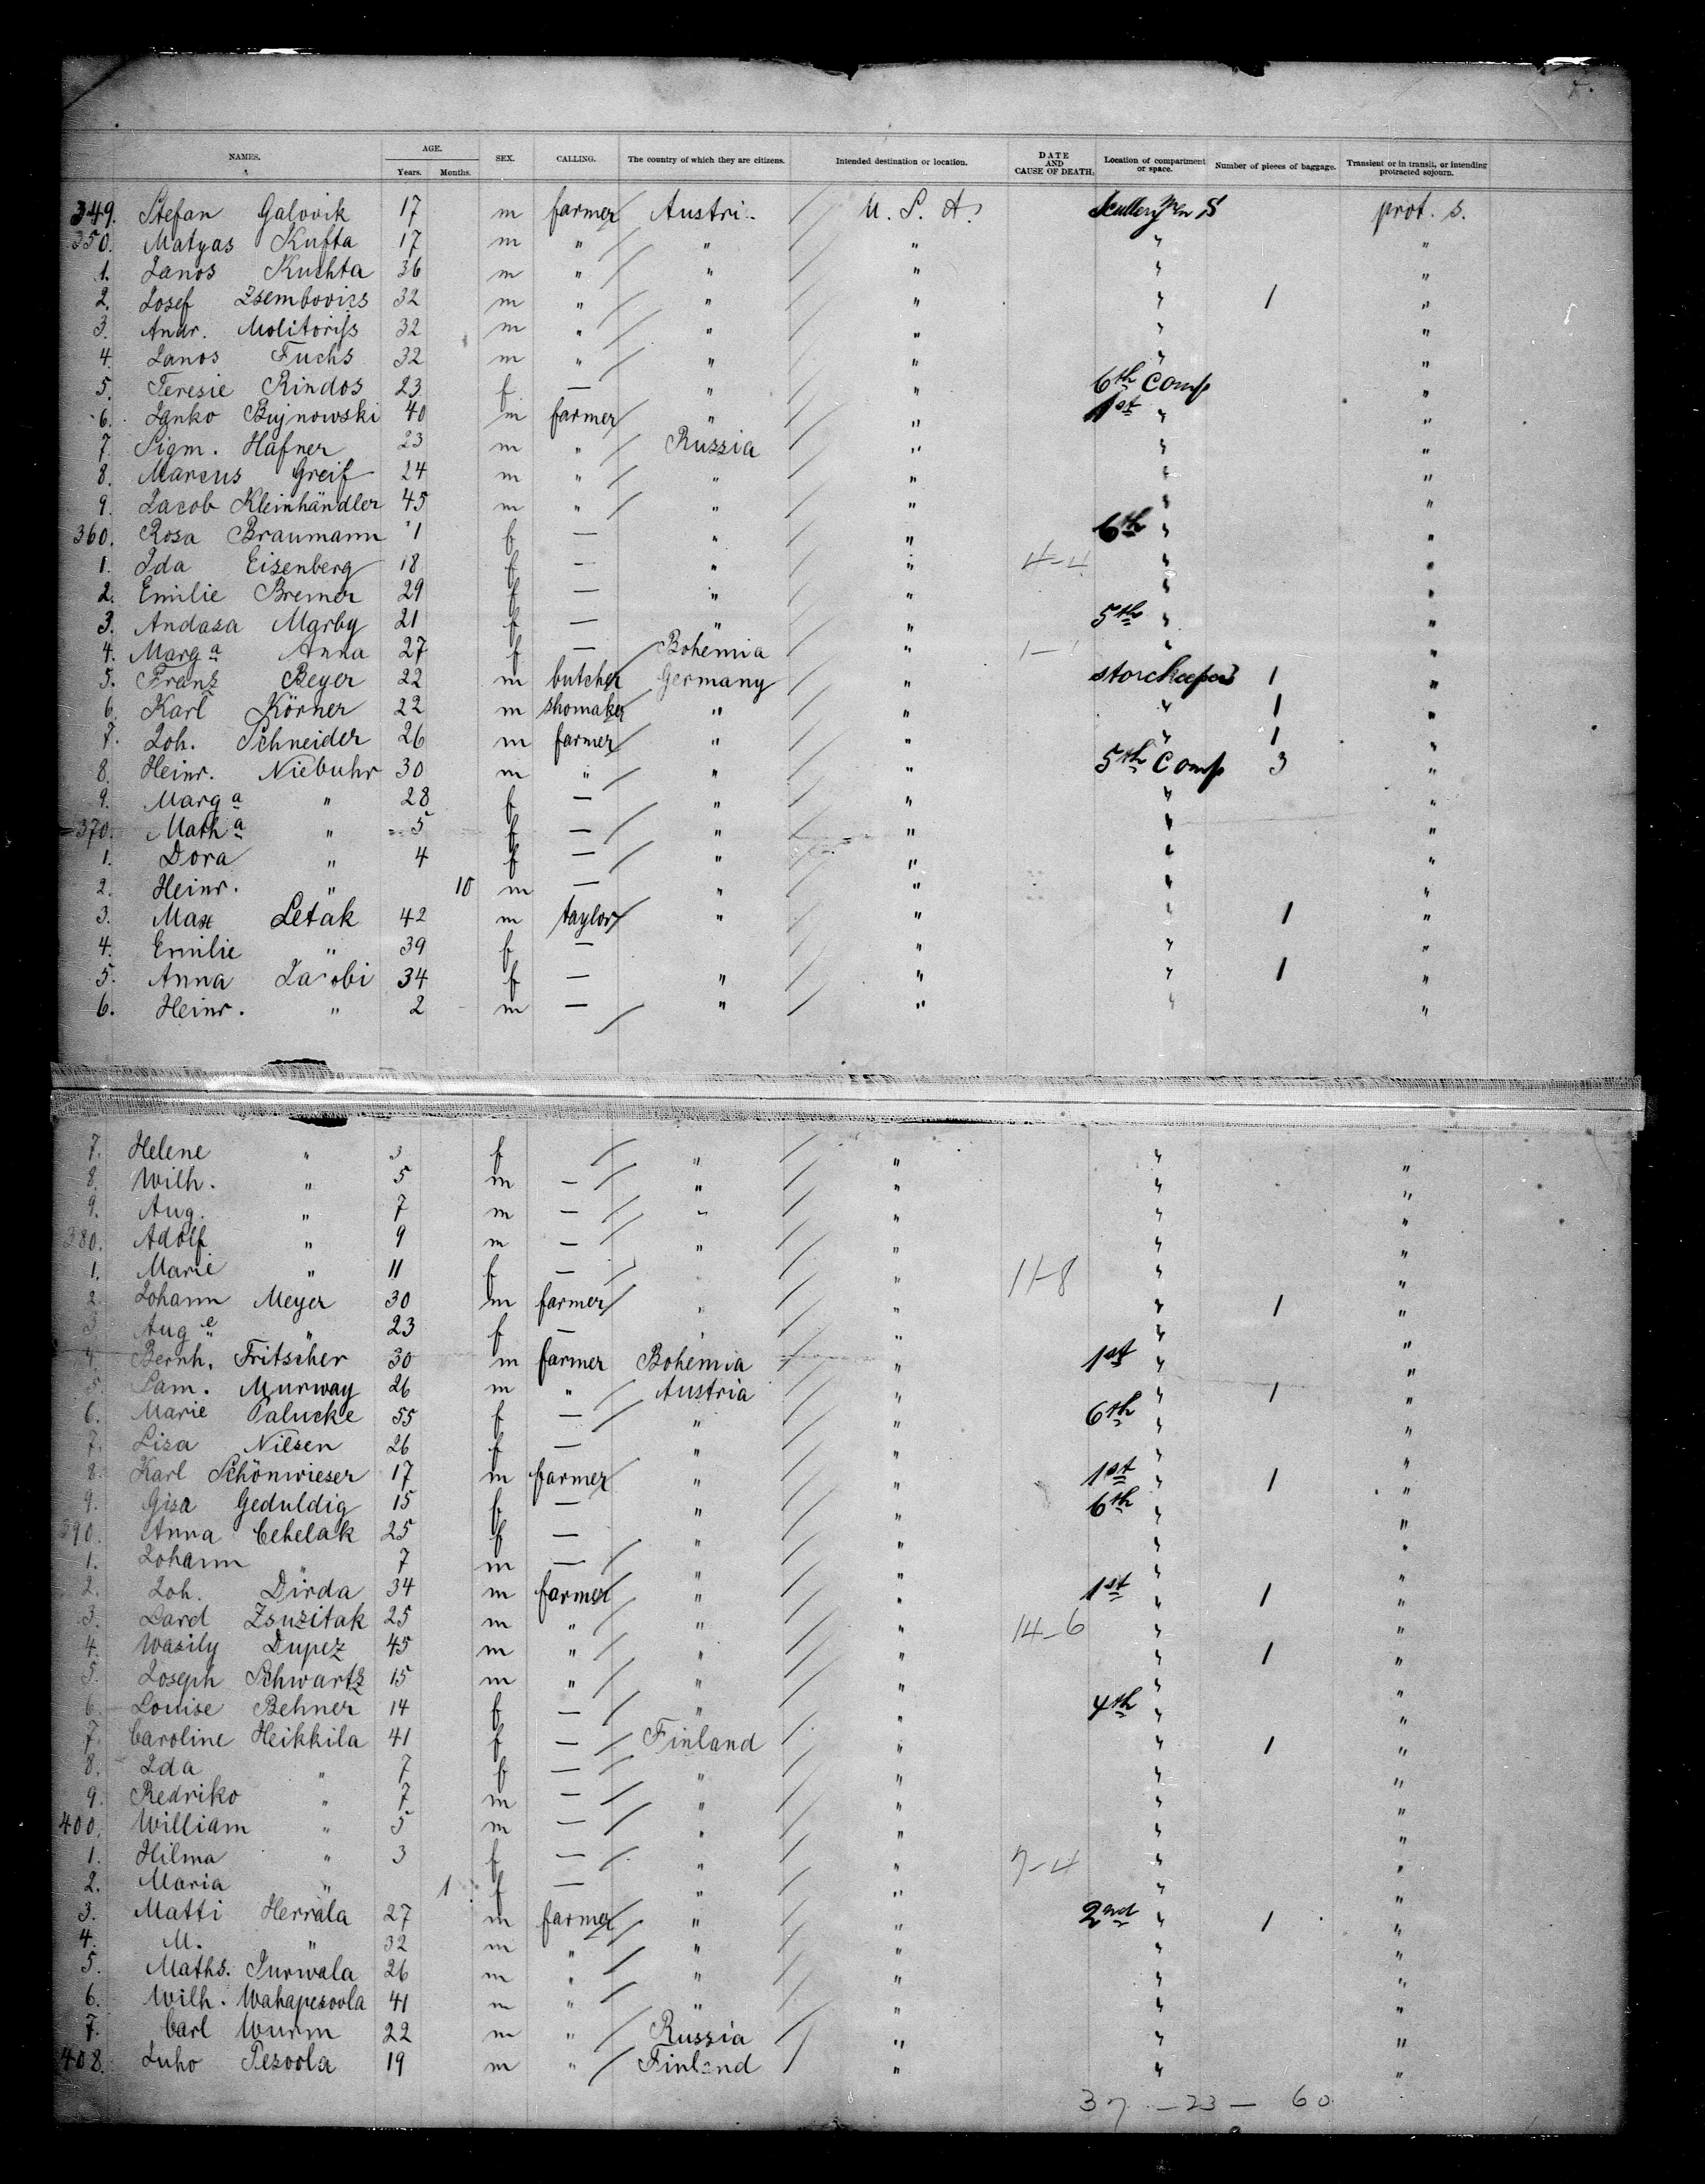 7.
NAMES. AGE. Years. Months. SEX. CALLING. The country of which they are citizens. Intended destination or location. DATE AND CAUSE OF DEATH. Location of compartment or space. Number of pieces of baggage. Transient or in transit, or intending protracted sojourn.
349. Stefan Galovik 17 m farmer Austri. U. S. A. prot. s.
350. Matyas Kufta 17 m " " " " "
1. Janos Kuchta 36 m " " " " "
2. Josef Zsembovics 32 m " " " " 1 "
3. Andr. Molitoriss 32 m " " " " "
4. Janos Fuchs 32 m " " " " "
5. Teresie Rindos 23 f — " " 6th Comp "
6. Janko Bujnowski 40 m farmer " " 1st " "
7. Sigm. Hafner 23 m " Russia " " "
8. Marcus Greif 24 m " " " " "
9. Jacob Kleinhändler 45 m " " " " "
360. Rosa Braumann 1 f — " " 6th " "
1. Ida Eisenberg 18 f — " " 4-4 " "
2. Emilie Bremer 29 f — " " " "
3. Andasa Marby 21 f — " " 5th " "
4. Marga Anna 27 f — Bohemia " " "
5. Franz Beyer 22 m butcher Germany " storekeepers 1 "
6. Karl Körner 22 m shomaker " " " 1 "
7. Joh. Schneider 26 m farmer " " " 1 "
8. Heinr. Niebuhr 30 m " " " 5th Comp 3 "
9. Marga " 28 f — " " " "
370. Matha " 5 f — " " " "
1. Dora " 4 f — " " " "
2. Heinr. " 10 m — " " " "
3. Max Letak 42 m taylor " " " 1 "
4. Emilie " 39 f — " " "
5. Anna Jacobi 34 f — " " " 1 "
6. Heinr. " 2 m — " " " "
7. Helene " 3 f " " " "
8. Wilh. " 5 m — " " " "
9. Aug. " 7 m — " " " "
380. Adolf " 9 m — " " " "
1. Marie " 11 f — " 11-8 " "
2. Johann Meyer 30 m farmer " " " 1 "
3 Auge " 23 f — " " " "
4. Bernh. Fritscher 30 m farmer Bohemia " 1st " "
5. Sam. Murway 26 m " Austria " " 1 "
6. Marie Palucke 55 f — " " 6th " "
7. Lisa Nilsen 26 f — " " " "
8. Karl Schönwieser 17 m farmer " " 1st " 1 "
9. Gisa Geduldig 15 f — " " 6th " "
390. Anna Cehelak 25 f — " " " "
1. Johann " 7 m — " " " "
2. Joh. Dirda 34 m farmer " " 1st " 1 "
3. Lard Zsuzitak 25 m " " " 14-6 " "
4. Wasily Dupez 45 m " " " " 1 "
5. Joseph Schwartz 15 m " " " " "
6. Louise Behner 14 f — " " 4th " "
7. Caroline Heikkila 41 f — Finland " " 1 "
8. Ida " 7 f — " " " "
9. Redriko " 7 m — " " " "
400. William " 5 m — " " " "
1. Hilma " 3 f — " " 7-4 " "
2. Maria " 1 f — " " " "
3. Matti Herrala 27 m farmer " " 2nd " 1 "
4. M. " 32 m " " " " "
5. Maths. Jurwala 26 m " " " " "
6. Wilh. Wahapesoola 41 m " " " " "
7. Carl Wurm 22 m " Russia " " "
408. Juho Pesoola 19 m " Finland " " "
37 — 23 — 60